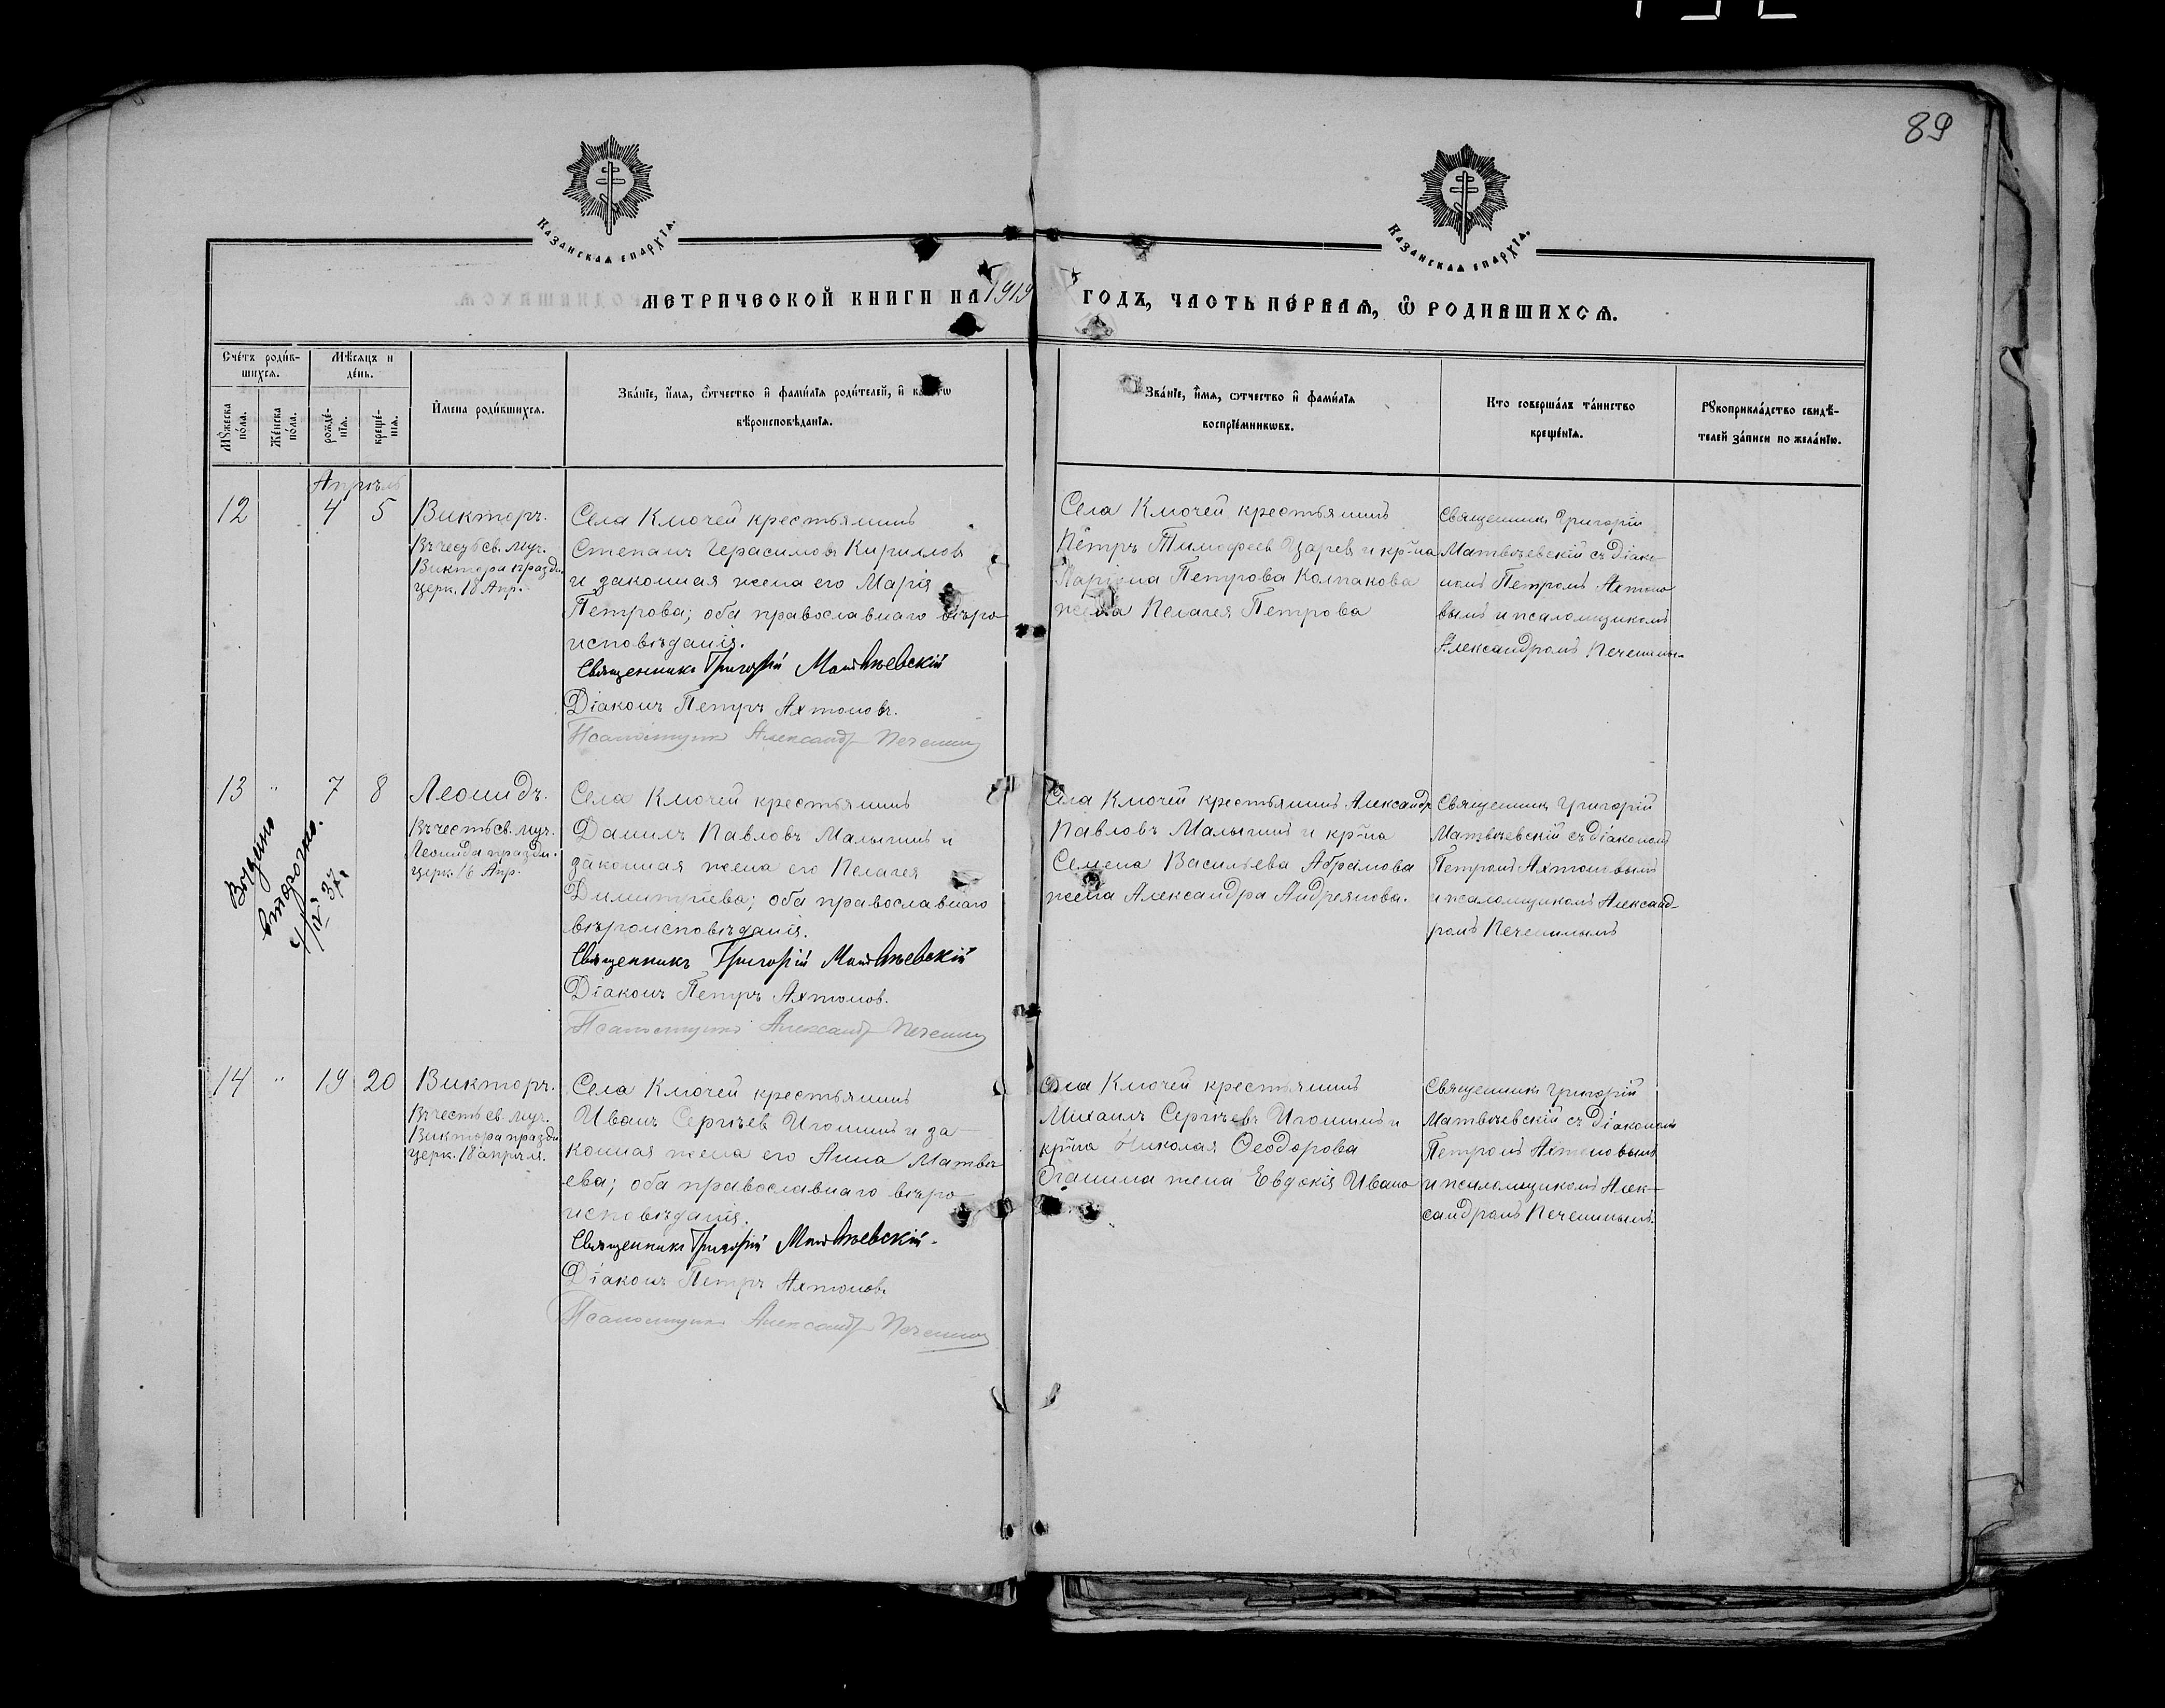 89
Казанская епархїѧ.
Казанская епархїѧ.
МЕТРИЧЕСКОЙ КНИГИ НА 1919 ГОДЪ, ЧАСТЬ ПЕ́РВАѦ, Ѡ҆ РОДИВШИХСѦ.
Сче́тъ роди́в-
шихсѧ.
Мѣ́сѧцъ и
де́нь.
Мꙋ́жеска
по́ла.
Же́нска
по́ла.
рожде́-
нїѧ.
креще́-
нїѧ.
И҆мена роди́вшихсѧ.
Зва́нїе, и҆́мѧ, ѻ҆́тчество и҆ фами́лїѧ роди́телей, и҆ како́гѡ
вѣроисповѣ́данїѧ.
Зва́нїе, и҆́мѧ, ѻ҆́тчество и҆ фами́лїѧ
воспрїе́мникѡвъ.
Кто соверша́лъ та́инство
креще́нїѧ.
Рꙋкоприкла́дство свидѣ́-
телей за́писи по жела́нїю.
Апрѣль
12 4 5 Викторъ.
Въ честь св. муч.
Виктора праздн.
церк. 18 Апр.
Села Ключей крестьянинъ
Степанъ Герасимовъ Кирилловъ
и законная жена его Марія
Петрова; оба православнаго вѣро-
исповѣданія.
Священникъ Григорій Матвѣевскій
Діаконъ Петръ Ахтоновъ.
Псаломщикъ Александръ Печенинъ
Села Ключей крестьянинъ
Петръ Тимофеевъ Царевъ и кр-на
Петрова Колпакова
жена Пелагея Петрова
Священникъ Григорій
Матвѣевскій съ діако-
номъ Петромъ Ахтоно-
вымъ и псаломщикомъ
Александромъ Печенины-
13 " 7 8 Леонидъ.
Въ честь св. муч.
Леонида праздн.
церк. 16 Апр.
Выдано
вторично.
4/IV 37 г.
Села Ключей крестьянинъ
Данилъ Павловъ Малыгинъ и
законная жена его Пелагея
Димитріева; оба православнаго
вѣроисповѣданія.
Священникъ Григорій Матвѣевскій
Діаконъ Петръ Ахтонов.
Псаломщикъ Александръ Печенинъ
Села Ключей крестьянинъ Александръ
Павловъ Малыгинъ и кр-на
Семена Васильева Абрамова
жена Александра Андреянова.
Священникъ Григорій
Матвѣевскій съ діакономъ
Петромъ Ахтоновымъ
и псаломщикомъ Александ-
ромъ Печенинымъ
14 " 19 20 Викторъ.
Въ честь св. муч.
Виктора праздн.
церк. 18 апрѣля.
Села Ключей крестьянинъ
Иванъ Сергѣевъ Игонинъ и за-
конная жена его Анна Матвѣ-
ева; оба православнаго вѣро-
исповѣданія.
Священникъ Григорій Матвѣевскій.
Діаконъ Петръ Ахтоновъ
Псаломщикъ Александръ Печенинъ
Села Ключей крестьянинъ
Михаилъ Сергѣевъ Игонинъ и
кр-на Николая Ѳеодорова
жена Евдокія Ивано-
Священникъ Григорій
Матвѣевскій съ діакономъ
Петромъ Ахтоновымъ
и псаломщикомъ Алек-
сандромъ Печенинымъ.